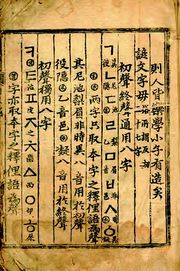 則亦皆樂學小子有造矣
諺文字母 俗所謂反切二十七字
初聲終聲通用八字
ㄱ其役 ㄴ尼隱 ㄷ池末 ㄹ梨乙 ㅁ眉音 ㅂ非邑 ㅅ時衣 ㆁ異凝
末衣兩字只取本字之釋俚語爲聲
其尼池梨眉非時異八音用於初聲
役隱末乙音邑衣凝八音用於終聲
初聲獨用八字
ㅋ箕 ㅌ治 ㅍ皮 ㅈ之 ㅊ齒 ㅿ而 ㅇ伊 ㅎ屎
箕字亦取本字之釋俚語爲聲